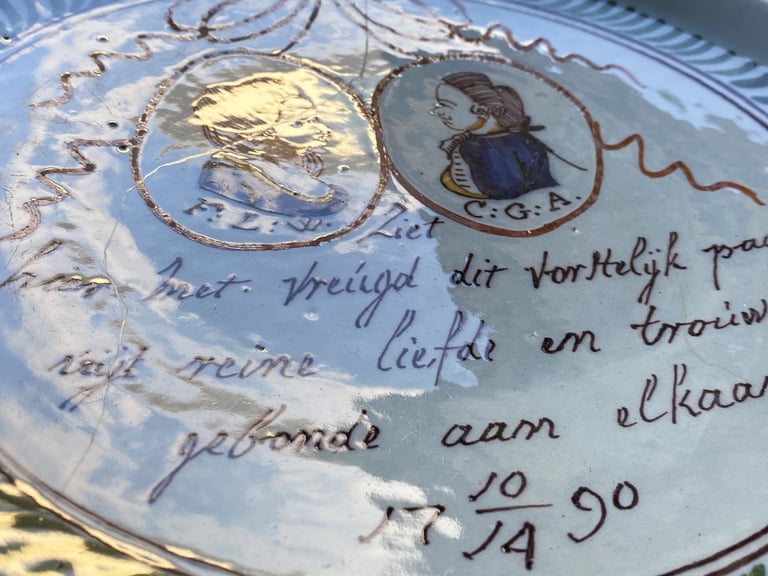 F: L: W. C: G: A.
Ziet
hier met vreúgd dit vorstelijk paa
uijt reine liefde en troúw
gebonde aam elkaar
17 10/14 90